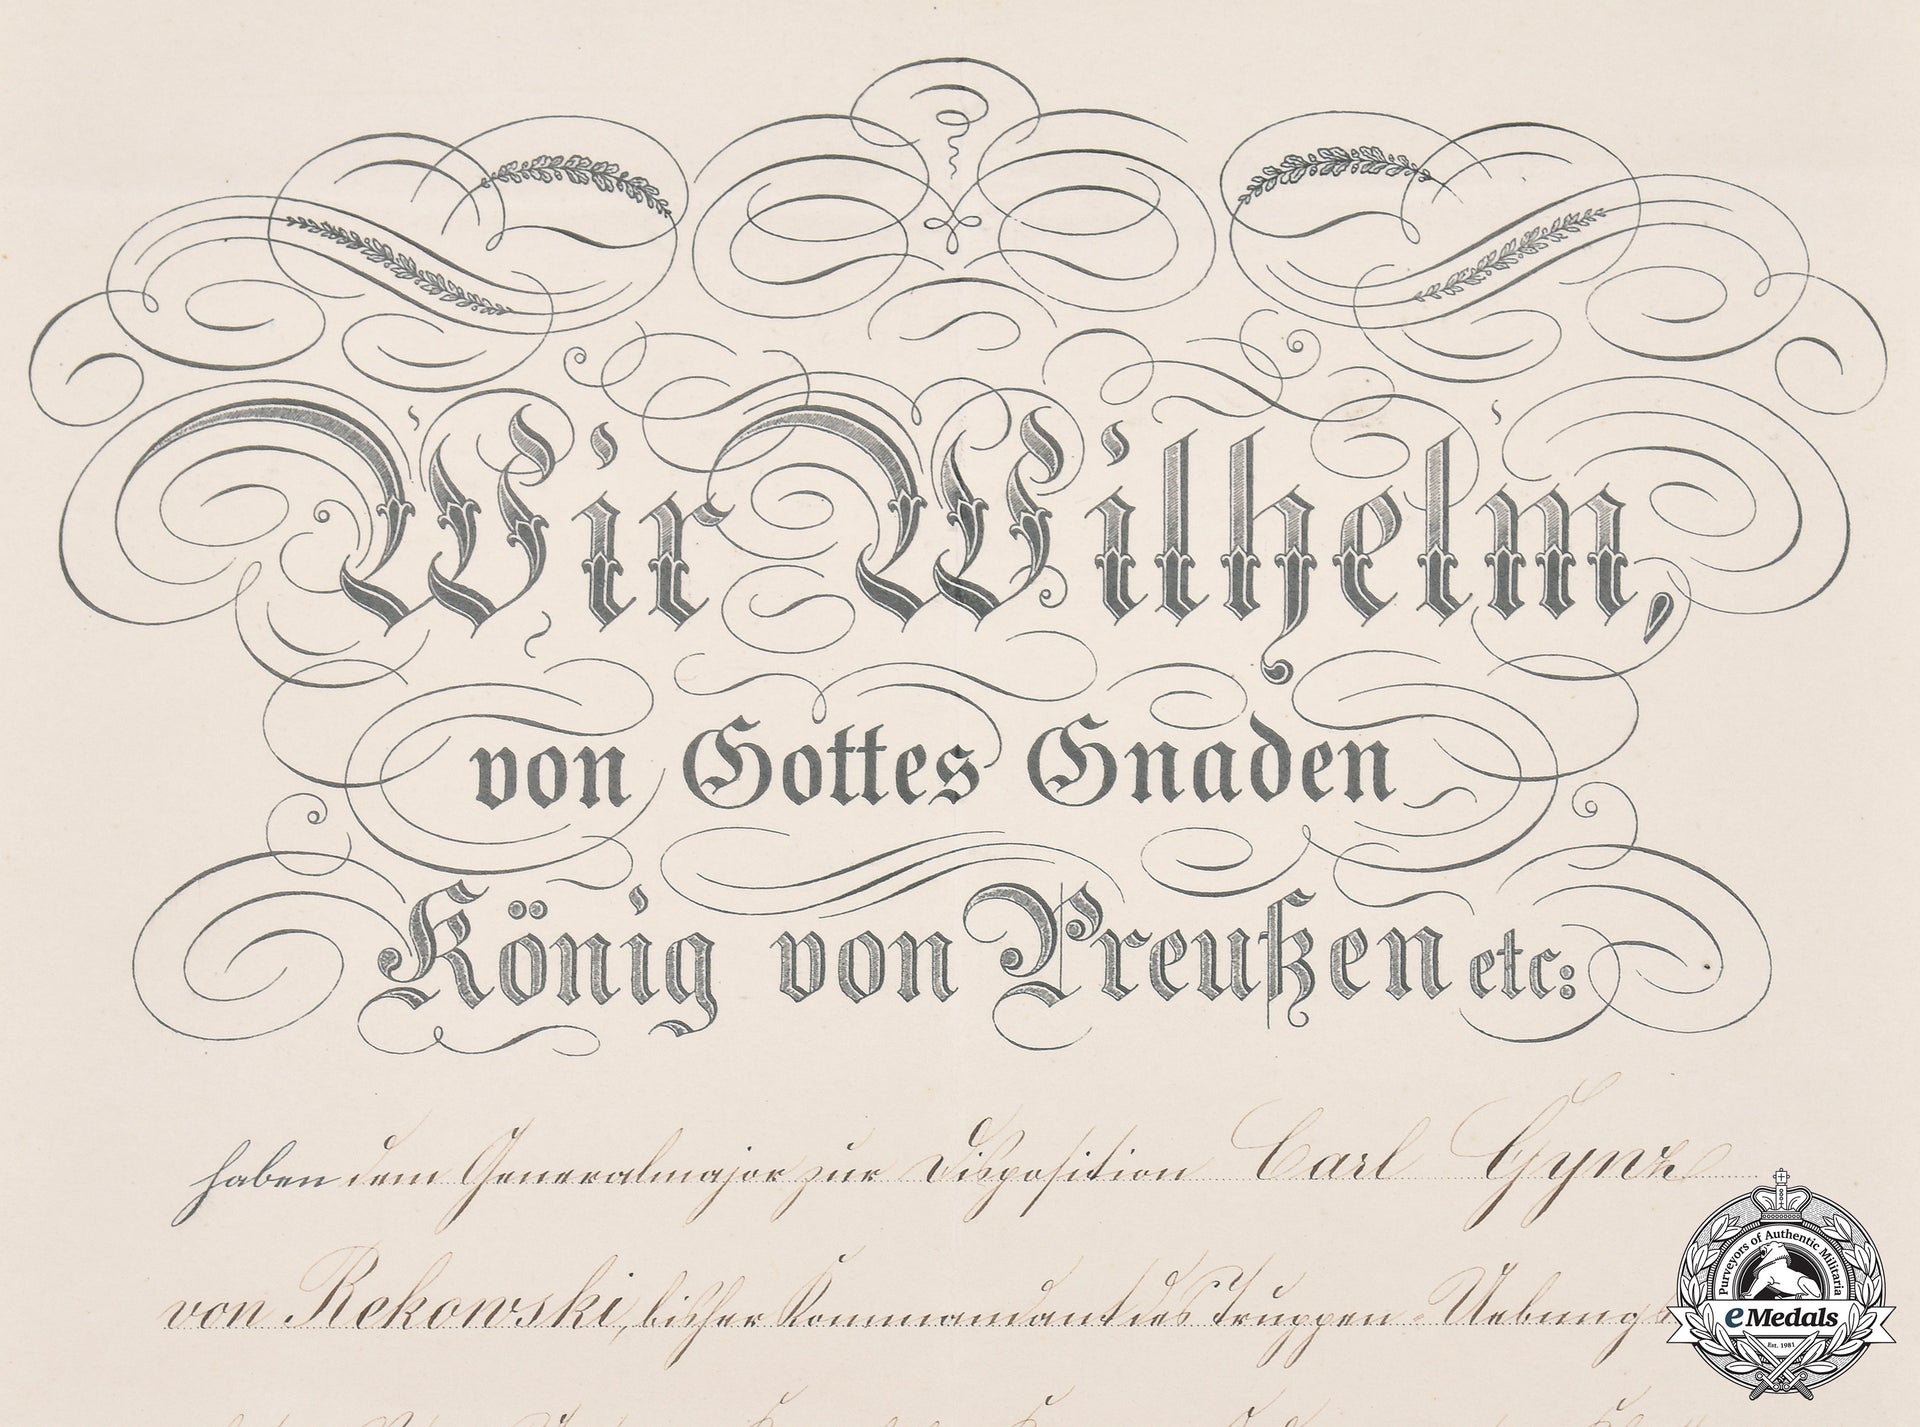 Wir Wilhelm,
von Gottes Gnaden
König von Preußen etc:
haben dem Generalmajor zur Disposition Carl
von Rekowski, bisher Kommandant des Truppen-Uebungs
Purveyors of Authentic Militaria
eMedals
Est. 1981